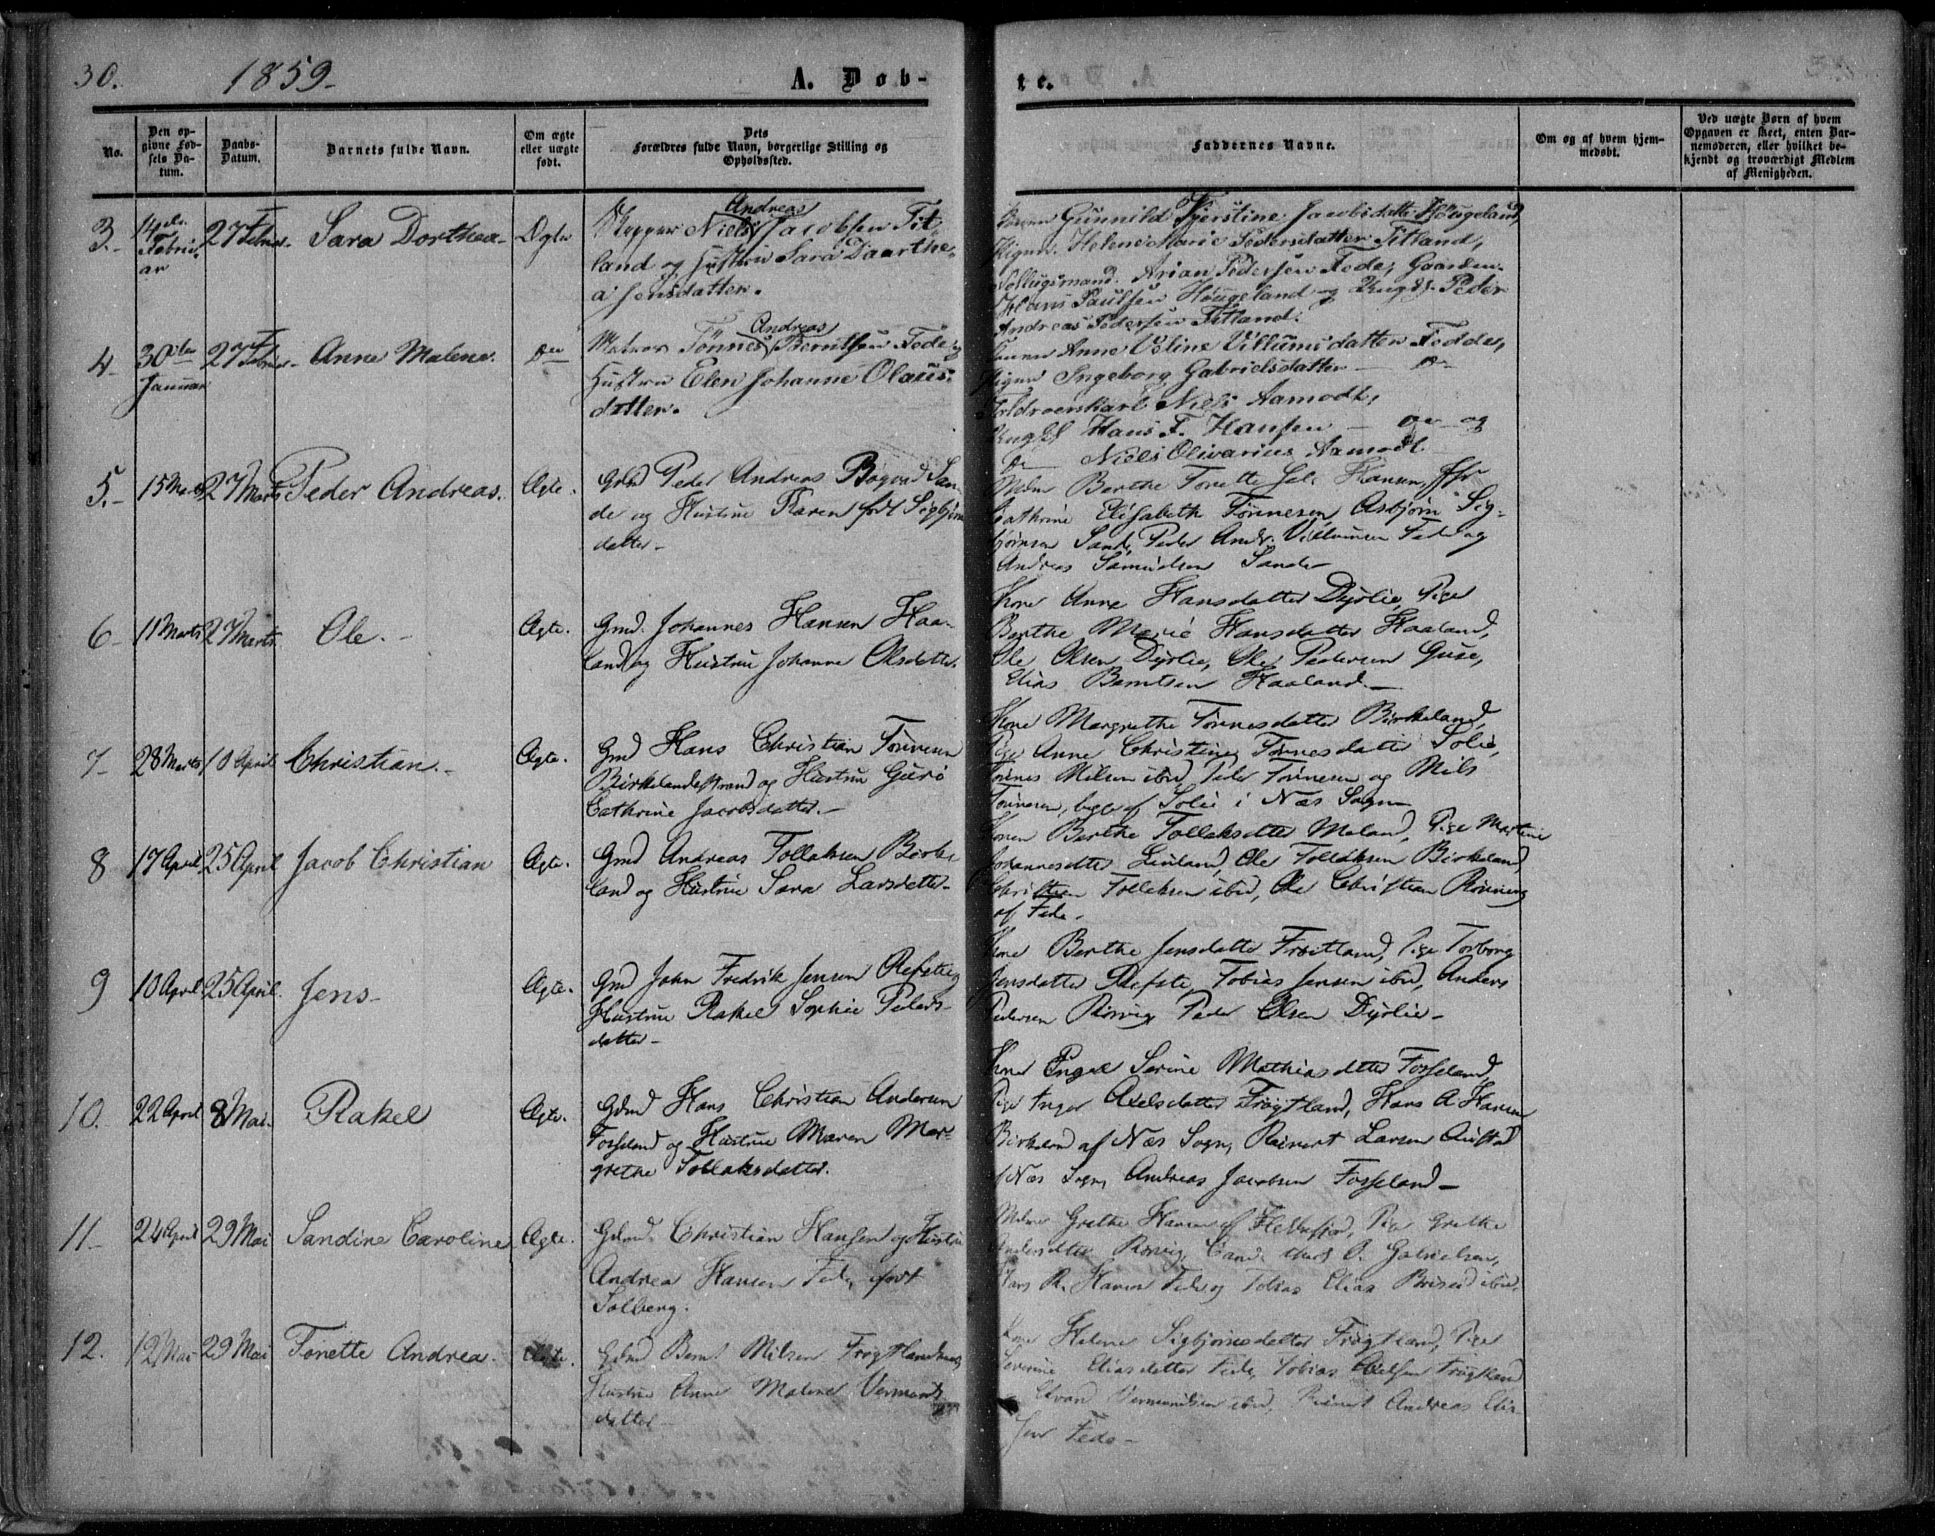 30.
1859-
A. Døb-
te.
No.
Den op-
givne Fød-
sels Da-
tum.
Daabs-
Datum.
Barnets fulde Navn.
Om ægte
eller uægte
født.
Dets
Forældres fulde Navn, borgerlige Stilling og
Opholdssted.
Faddernes Navne.
Om og af hvem hjem-
medøbt.
Ved uægte Børn af hvem
Opgaven er skeet, enten Bar-
nemoderen, eller hvilket be-
kjendt og troværdigt Medlem
af Menigheden.
3.-
14de
Febru-
ar
27 Februar-
Sara Dorthea-
Ægte
Andreas
Skipper Niels Jacobsen Fit-
land og Hustru Sara Daarthe-
a Jensdatter.
Gunnild Kjerstine Jacobsdatter Høugeland,
Pigen Helene Marie Pedersdatter Fitland,
Arian Pedersen Fede, Gaardm.
Hans Paulsen Høugeland og Ungk. Peder
Andreas Pedersen Fitland.
4-
30te
Januar
27 Februar-
Anne Malene.
Do
Andreas
Matros Tønnes Berntsen Fede og
Hustru Elen Johanne Olaus-
datter.
Anne Oline Villumsdatter Fedde,
Pigen Ingeborg Gabrielsdatter - Do-
Niels Aamodt,
Ungk Hans F. Hansen - Do- og
Do- Niels Olivarius Aamodt.
5.-
15 Marts
27 Marts
Peder Andreas.
Ægte.
Gmd Peder Andreas San-
de og Hustrue Karen født Sigbjørns
datter-
Mdm Berthe Tonette Hansen, Jfr
Cathrine Elisabeth Tønnesen, Asbjørn Sig-
bjørnsen Sande, Peder Andr. Villumsen Fede og
Andreas Samuelsen Sande-
6-
11 Marts
27 Marts.
Ole.-
Ægte.
Gmd. Johannes Hansen Haa-
land og Hustrue Johanne Olsdatter.
Kone Anne Hansdatter Dyrlie, Pige
Berthe Marie Hansdatter Haaland,
Ole Olsen Dyrlie, Ole Pedersen Guse,
Elias Berntsen Haaland.-
7-
28 Marts
10 April
Christian.-
Ægte.
Gmd Hans Christian Tønnesen
Birkelandsstrand og Hustrue Guro
Cathrine Jacobsdatter.-
Kone Margrethe Tønnesdatter Birkeland,
Pige Anne Christine Tønnesdatter Solie,
Tønnes Nilsen ibid, Peder Tønnesen og Nils
Tønnesen, begge af Solie i Næs Sogn
8
17 April
25 April
Jacob Christian
Ægte.
Gmd Andreas Tollaksen Birke
land og Hustrue Sara Larsdatter-
Konen Berthe Tollaksdatter Meland, Pige Martine
Johannesdtr Ole Tollaksen Birkeland,
Christian Tollaksen ibid, Ole Christian Rørvig
af Fede.
9
10 April
25 April.
Jens-
Ægte.
Gmd John Fredrik Jensen Refste og
Hustrue Rakel Sophie Peders-
datter-
Kone Berthe Jensdatter Frøitland, Pige Torborg
Jensdatter Refste, Tobias Jensen ibid, Anders
Pedersen Rørvig, Peder Olsen Dyrlie-
10.
22 April
8 Mai.
Rakel
Ægte.
Gdmd Hans Christian Andersen
Fosseland og Hustrue Maren Mar-
grethe Tollaksdatter.
Kone Engel Serine Mathiasdatter Fosseland,
Pige Inger Axelsdatter Frøgtland, Hans A Hansen
Birkeland af Næs Sogn, Reinert Larsen Austad
af Næs Sogn, Andreas Jacobsen Fosseland-
11-
24 April
29 Mai
Sandine Caroline
Ægte.
Gdmd. Christian Hansen og Hustru
Andrea Hansen Fede, født
Solberg.
Mdme Grethe Hansen af Flekkefjord, Pige Grethe
Andersdatter Rørvig, Cand. Gabrielsen,
Lars R. Hansen Fede og Tobias Elias ibid.
12.
12 Mai
29 Mai
Tonette Andrea.
Ægte.
Gdmd Bernt Nilsen Frøgtland og
Hustrue Anne Malene Vermunds
datter-
Kone Helene Sigbjørnsdatter Frøgtland, Pige
Severine Eliasdatter Fede, Tobias Axelsen Frøgtland
Vermundsen ibid, Reinert Andreas Eli-
sen Fede-